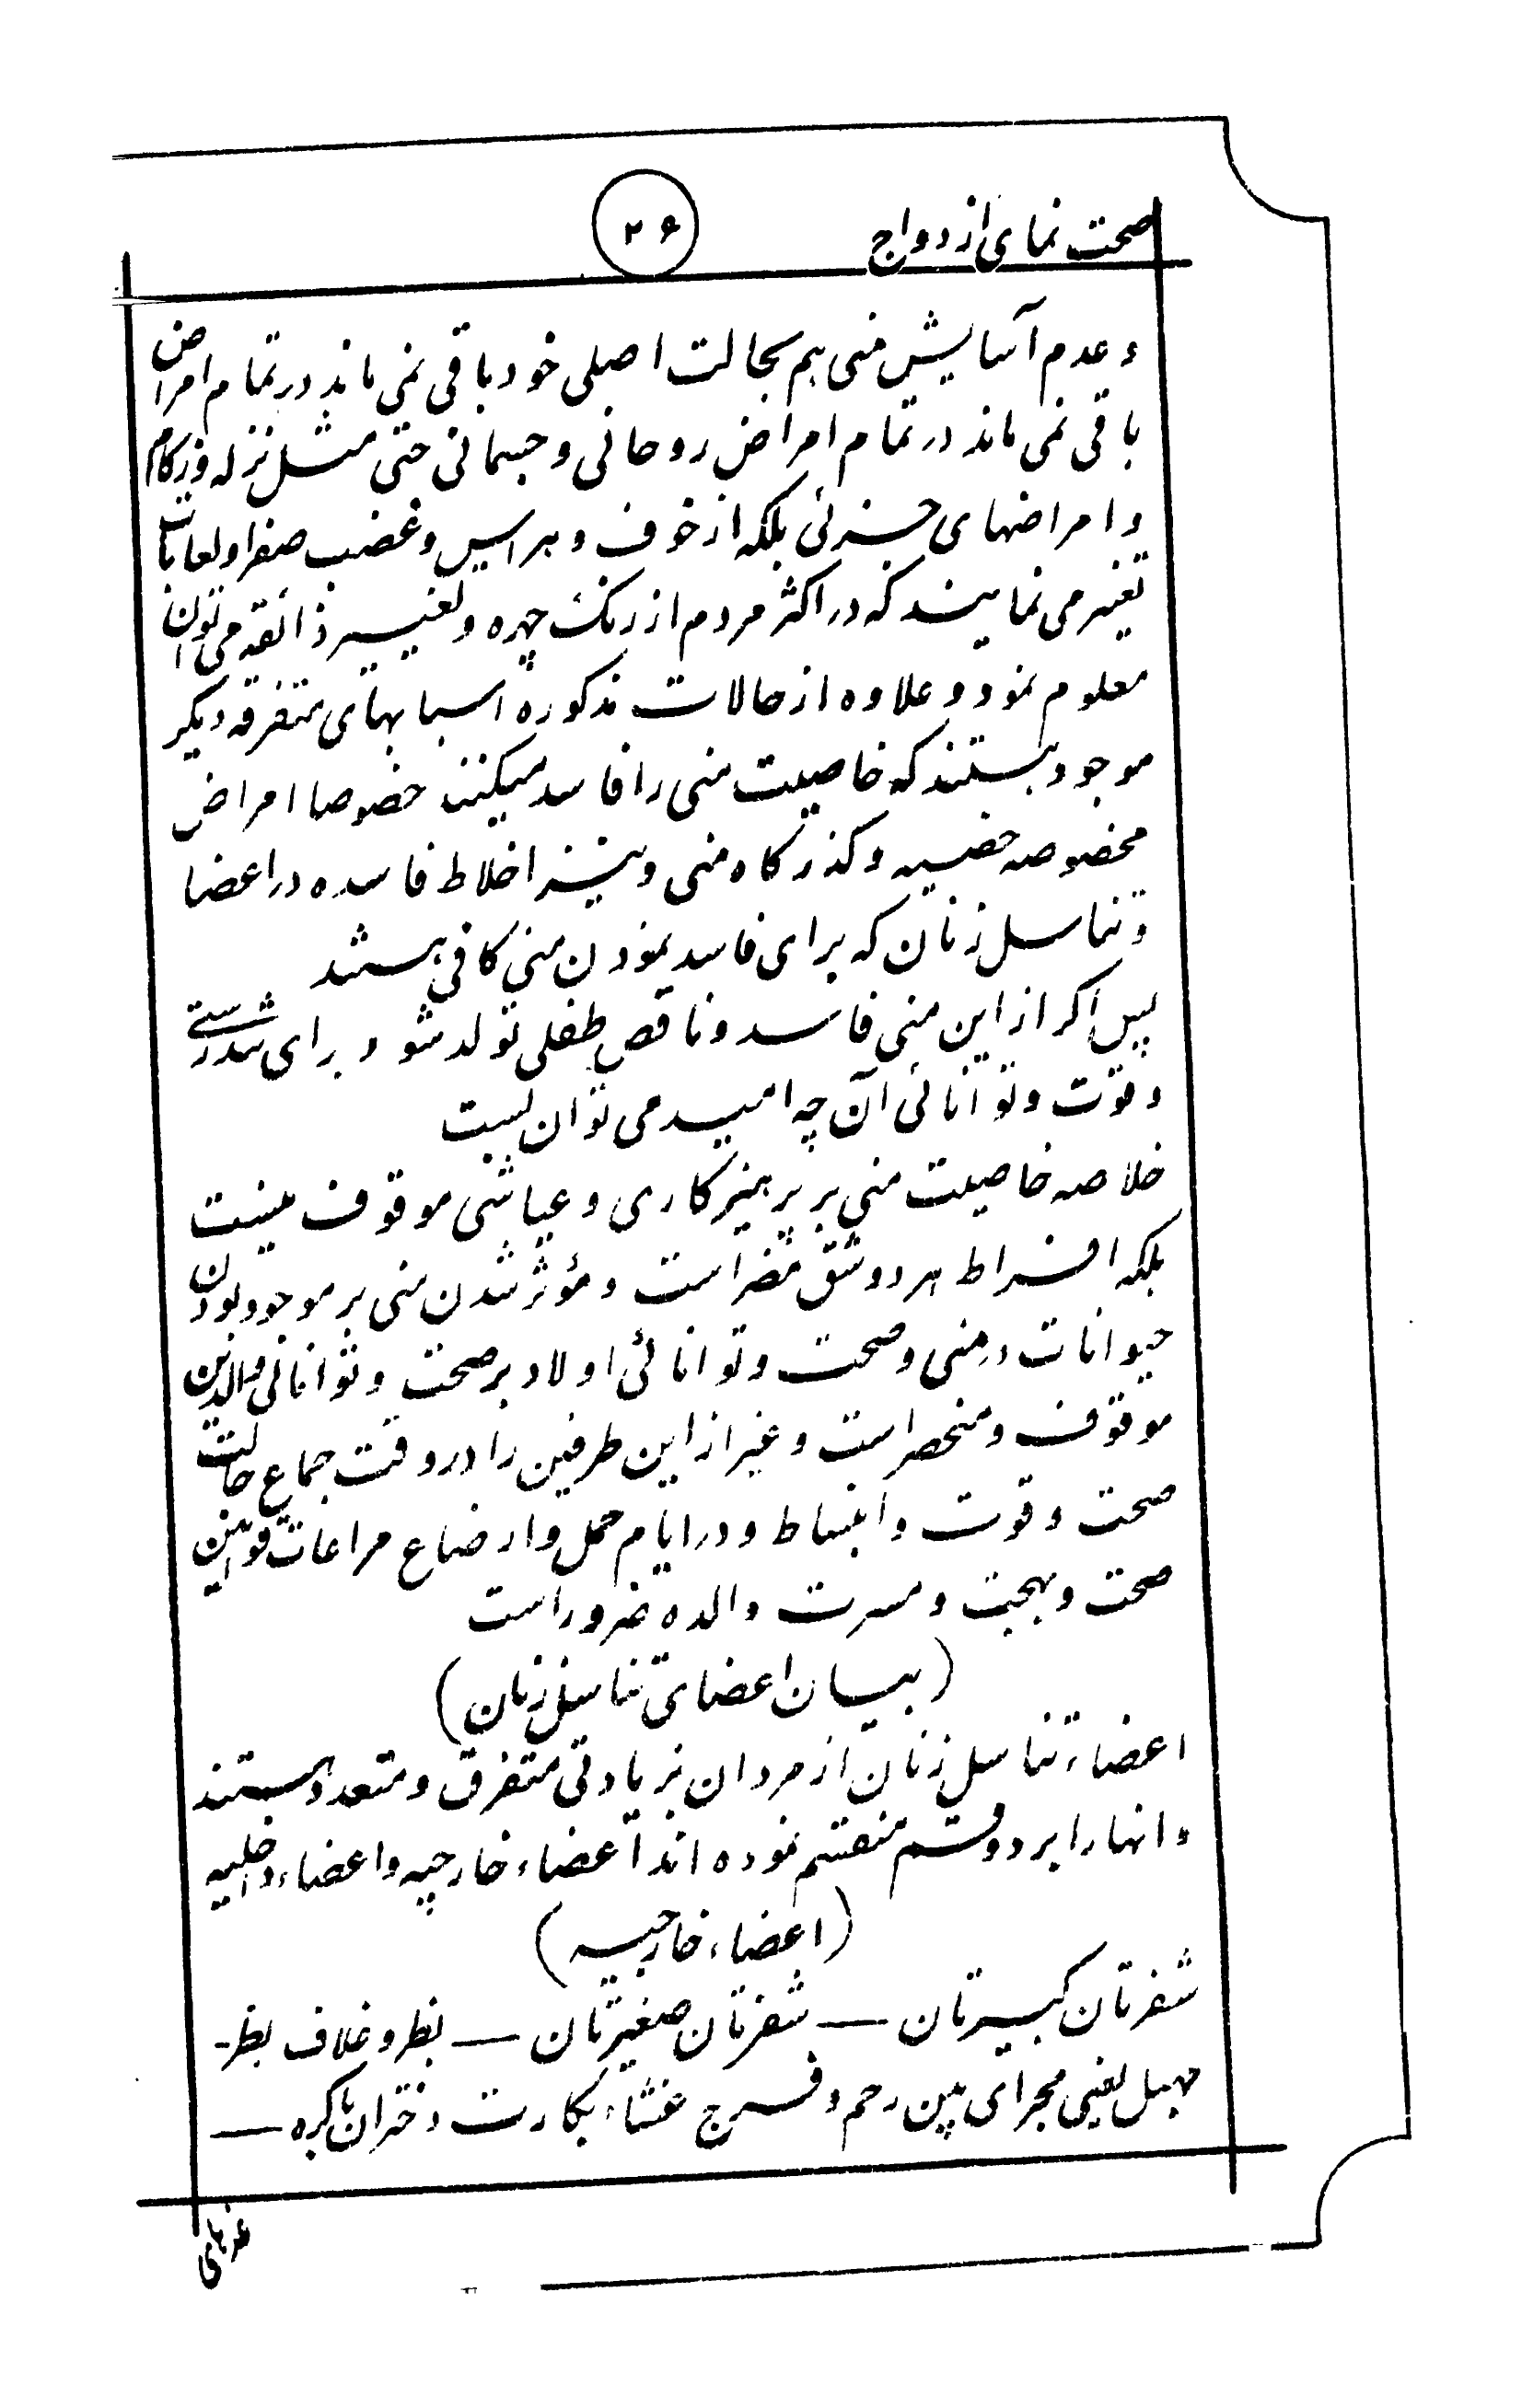 صحت نمای ازدواج
۲۶
و عدم آسایش منی هم بحالت اصلی خود باقی نمی ماند در تمام امراض
باقی نمی ماند در تمام امراض روحانی و جسمانی حتی مثل نزله و زکام
و امراضهای جزئی بلکه از خوف و هراس و غضب صفرا و لعابات
تغیر می نمایند که در اکثر مردم از رنک چهره و تغییر ذائقه می توان
معلوم نمود و علاوه از حالات مذکوره اسبابهای متفرقه دیکر
موجود هستند که خاصیت منی را فاسد میکنند خصوصا امراض
مخصوصه خصیه و کذرکاه منی و نیز اخلاط فاسده در اعضا
تناسل زنان که برای فاسد نمودن منی کافی هستند
پس اکر از این منی فاسد و ناقص طفلی تولد شود برای تندرستی
و قوت و توانائی آن چه امید می توان بست
خلاصه خاصیت منی بر پرهیزکاری و عیاشی موقوف نیست
بلکه افراط هر دو شق مضر است و مؤثر شدن منی بر موجود بودن
حیوانات در منی و صحت و توانائی اولاد بر صحت و توانائی والدین
موقوف و منحصر است و غیر از این طرفین را در وقت جماع حالت
صحت و قوت و انبساط و در ایام حمل و ارضاع مراعات قوانین
صحت و بهجت و مسرت والده ضرور است
(بیسان اعضای تناسل زنان)
اعضاء تناسل زنان از مردان بزیادتی متفرق و متعدد هستند
و انها را بر دو قسم منقسم نموده اند اعضاء خارجیه و اعضاء داخلیه
(اعضاء خارجیه)
شفرتان کبیرتان — شفرتان صغیرتان — بظر و غلاف بظر-
مهبل یعنی مجرای بین رحم و فرج غشاء بکارت دختران باکره —
غدهای